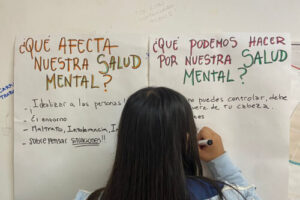 ¿QUÉ AFECTA
NUESTRA SALUD
MENTAL?
- Idealizar a las personas
- El entorno
- Maltrato, Intolerancia,
- Sobre pensar SITUACIONES!!
¿QUÉ PODEMOS HACER
POR NUESTRA SALUD
MENTAL?
puedes controlar, debe
de tu cabeza